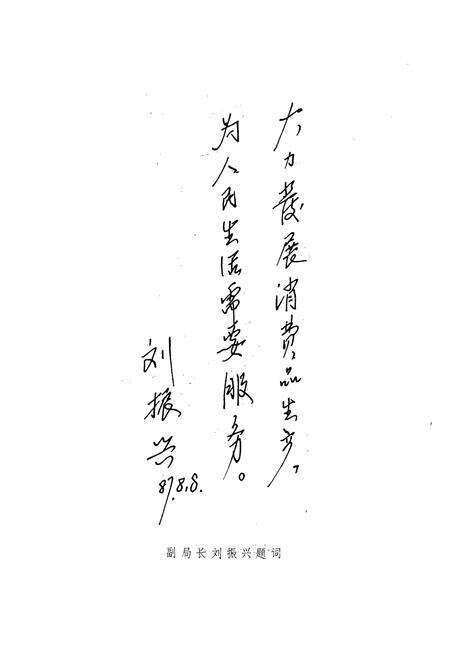 大力发展消费品生产，
为人民生活需要服务。
刘振兴
87.8.8.
副局长刘振兴题词